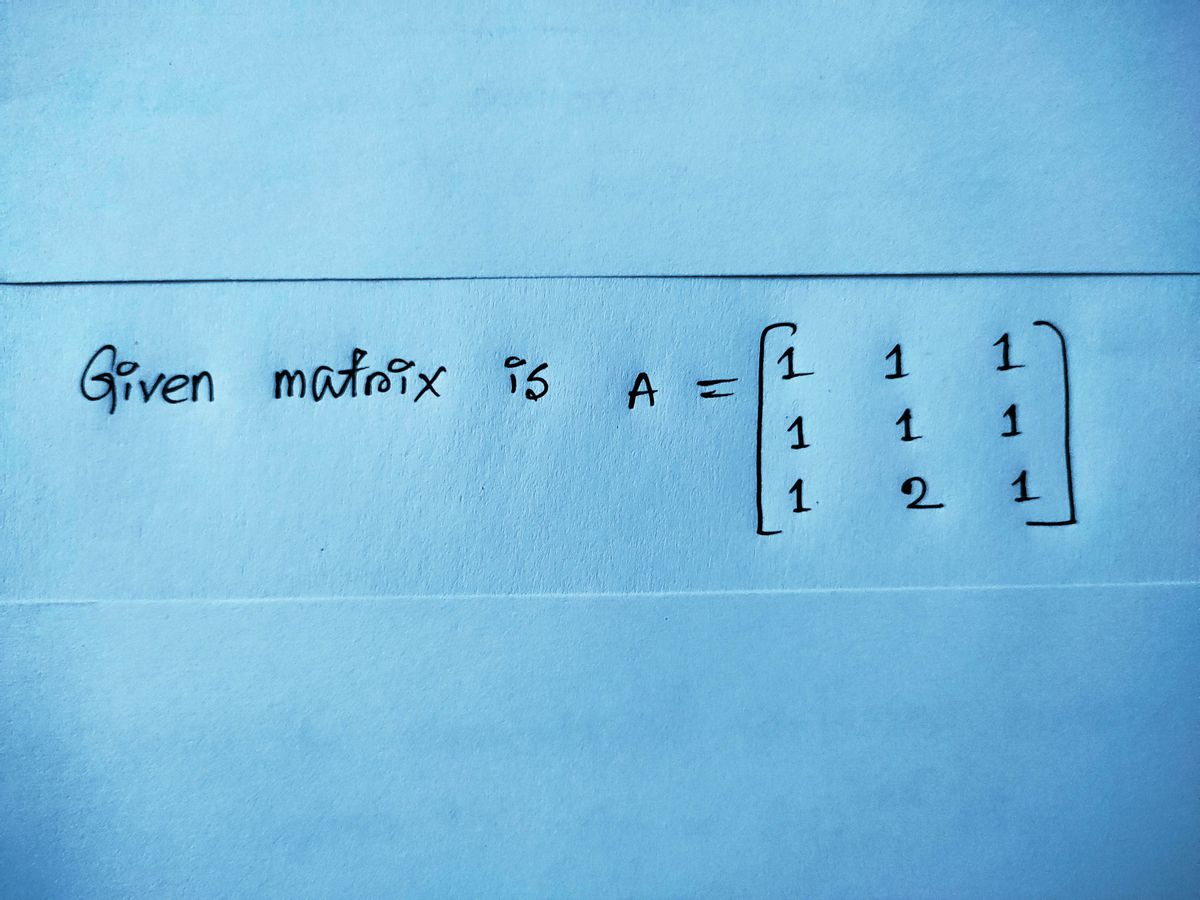 Given matrix is A = [1 1 1
1 1 1
1 2 1]